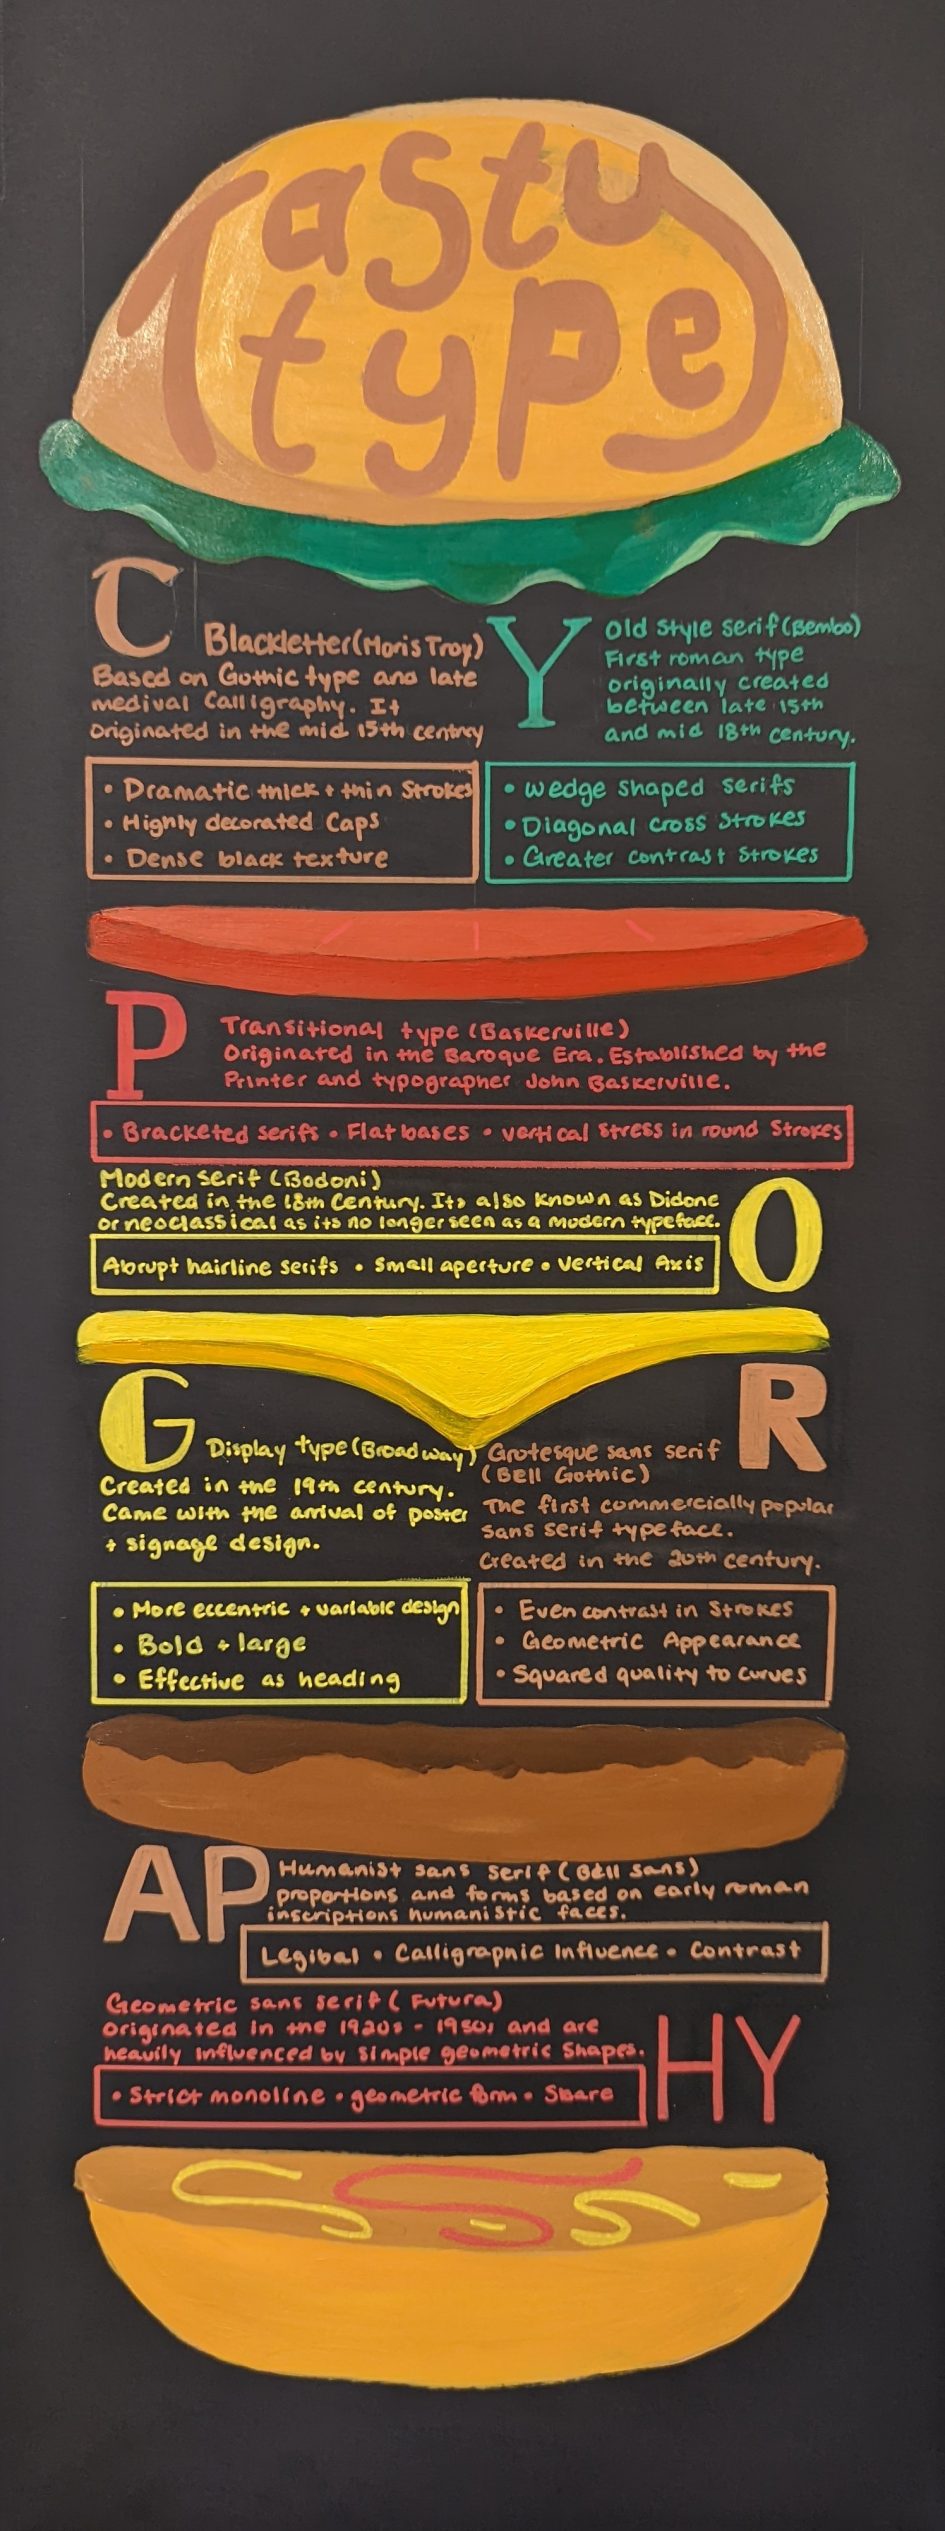 Tasty
type
C
Blackletter (Moris Troy)
Based on Gothic type and late
medival Calligraphy. It
originated in the mid 15th centrey
• Dramatic thick + thin Strokes
• Highly decorated Caps
• Dense black texture
Y
Old Style serif (Bembo)
First roman type
originally created
between late 15th
and mid 18th century.
• wedge shaped serifs
• Diagonal cross strokes
• Greater contrast strokes
P
Transitional type (Baskerville)
Originated in the Baroque Era. Established by the
Printer and typographer John Baskerville.
• Bracketed serifs • Flat bases • vertical stress in round Strokes
Modern serif (Bodoni)
Created in the 18th Century. Its also known as Didone
or neoclassical as its no longer seen as a modern typeface.
Abrupt hairline serifs • Small aperture • Vertical Axis
O
G
Display type (Broadway)
Created in the 19th century.
Came with the arrival of poster
+ signage design.
• More eccentric + variable design
• Bold + large
• Effective as heading
R
Grotesque sans serif
(Bell Gothic)
The first commercially popular
sans serif typeface.
Created in the 20th century.
• Even contrast in Strokes
• Geometric Appearance
• Squared quality to curves
AP
Humanist sans serif (Bell sans)
proportions and forms based on early roman
inscriptions humanistic faces.
Legibal • Calligraphic Influence • Contrast
Geometric sans serif (Futura)
Originated in the 1920s - 1930s and are
heavily influenced by simple geometric Shapes.
• Strict monoline • geometric form •
HY